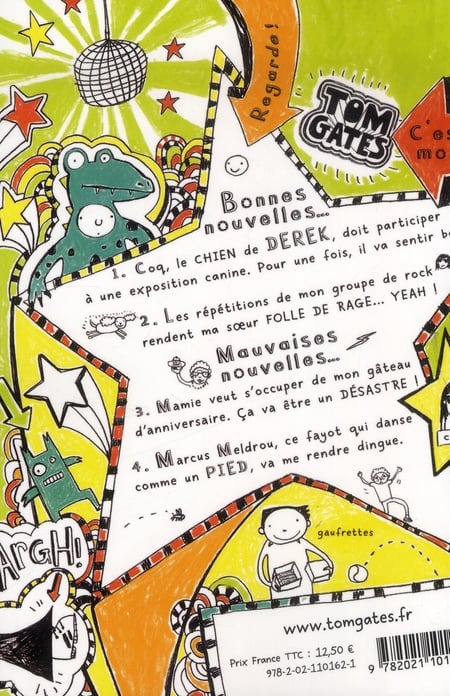 Regarde!
TOM
GATES
C'es
mo
Bonnes
nouvelles...
1. Coq, le CHIEN de DEREK, doit participer
à une exposition canine. Pour une fois, il va sentir b
2. Les répétitions de mon groupe de rock
rendent ma sœur FOLLE DE RAGE... YEAH !
Mauvaises
nouvelles...
3. Mamie veut s'occuper de mon gâteau
d'anniversaire. Ça va être un DÉSASTRE !
4. Marcus Meldrou, ce fayot qui danse
comme un PIED, va me rendre dingue.
ARGH!
gaufrettes
www.tomgates.fr
Prix France TTC : 12,50 €
978-2-02-110162-1
9 782021 101